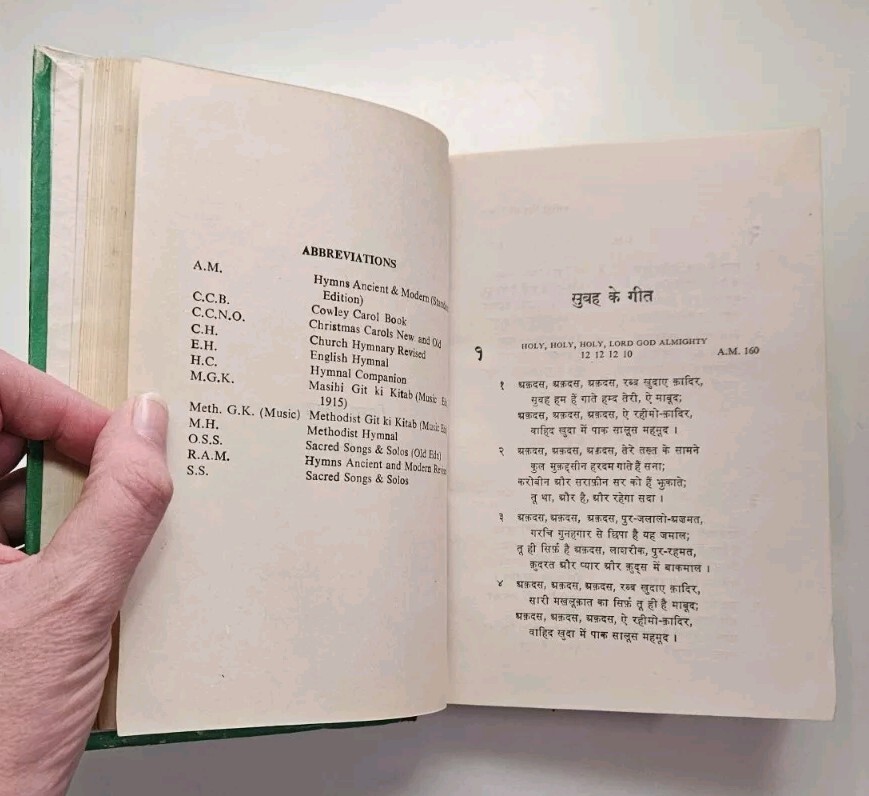 ABBREVIATIONS
A.M. Hymns Ancient & Modern
Edition)
C.C.B. Cowley Carol Book
C.C.N.O. Christmas Carols New and Old
C.H. Church Hymnary Revised
E.H. English Hymnal
H.C. Hymnal Companion
M.G.K. Masihi Git ki Kitab (Music
1915)
Meth. G.K. (Music) Methodist Git ki Kitab (Music
M.H. Methodist Hymnal
O.S.S. Sacred Songs & Solos (Old Edt)
R.A.M. Hymns Ancient and Modern
S.S. Sacred Songs & Solos
सुबह के गीत
१ HOLY, HOLY, HOLY, LORD GOD ALMIGHTY
12 12 12 10 A.M. 160
१ अक़दस, अक़दस, अक़दस, रब्ब खुदाए क़ादिर,
सुबह हम हैं गाते हम्द तेरी, ऐ माबूद;
अक़दस, अक़दस, अक़दस, ऐ रहीमो-क़ादिर,
वाहिद खुदा में पाक सालूस महमूद ।
२ अक़दस, अक़दस, अक़दस, तेरे तख़्त के सामने
कुल मुक़द्दसीन हरदम गाते हैं सना;
करोबीन और सराफ़ीन सर को हैं झुकाते;
तू था, और है, और रहेगा सदा ।
३ अक़दस, अक़दस, अक़दस, पुर-जलालो-अज़मत,
गरचि गुनहगार से छिपा है यह जमाल;
तू ही सिर्फ़ है अक़दस, लाशरीक, पुर-रहमत,
क़ुदरत और प्यार और क़ुद्स में बाकमाल ।
४ अक़दस, अक़दस, अक़दस, रब्ब खुदाए क़ादिर,
सारी मखलूक़ात का सिर्फ़ तू ही है माबूद;
अक़दस, अक़दस, अक़दस, ऐ रहीमो-क़ादिर,
वाहिद खुदा में पाक सालूस महमूद ।